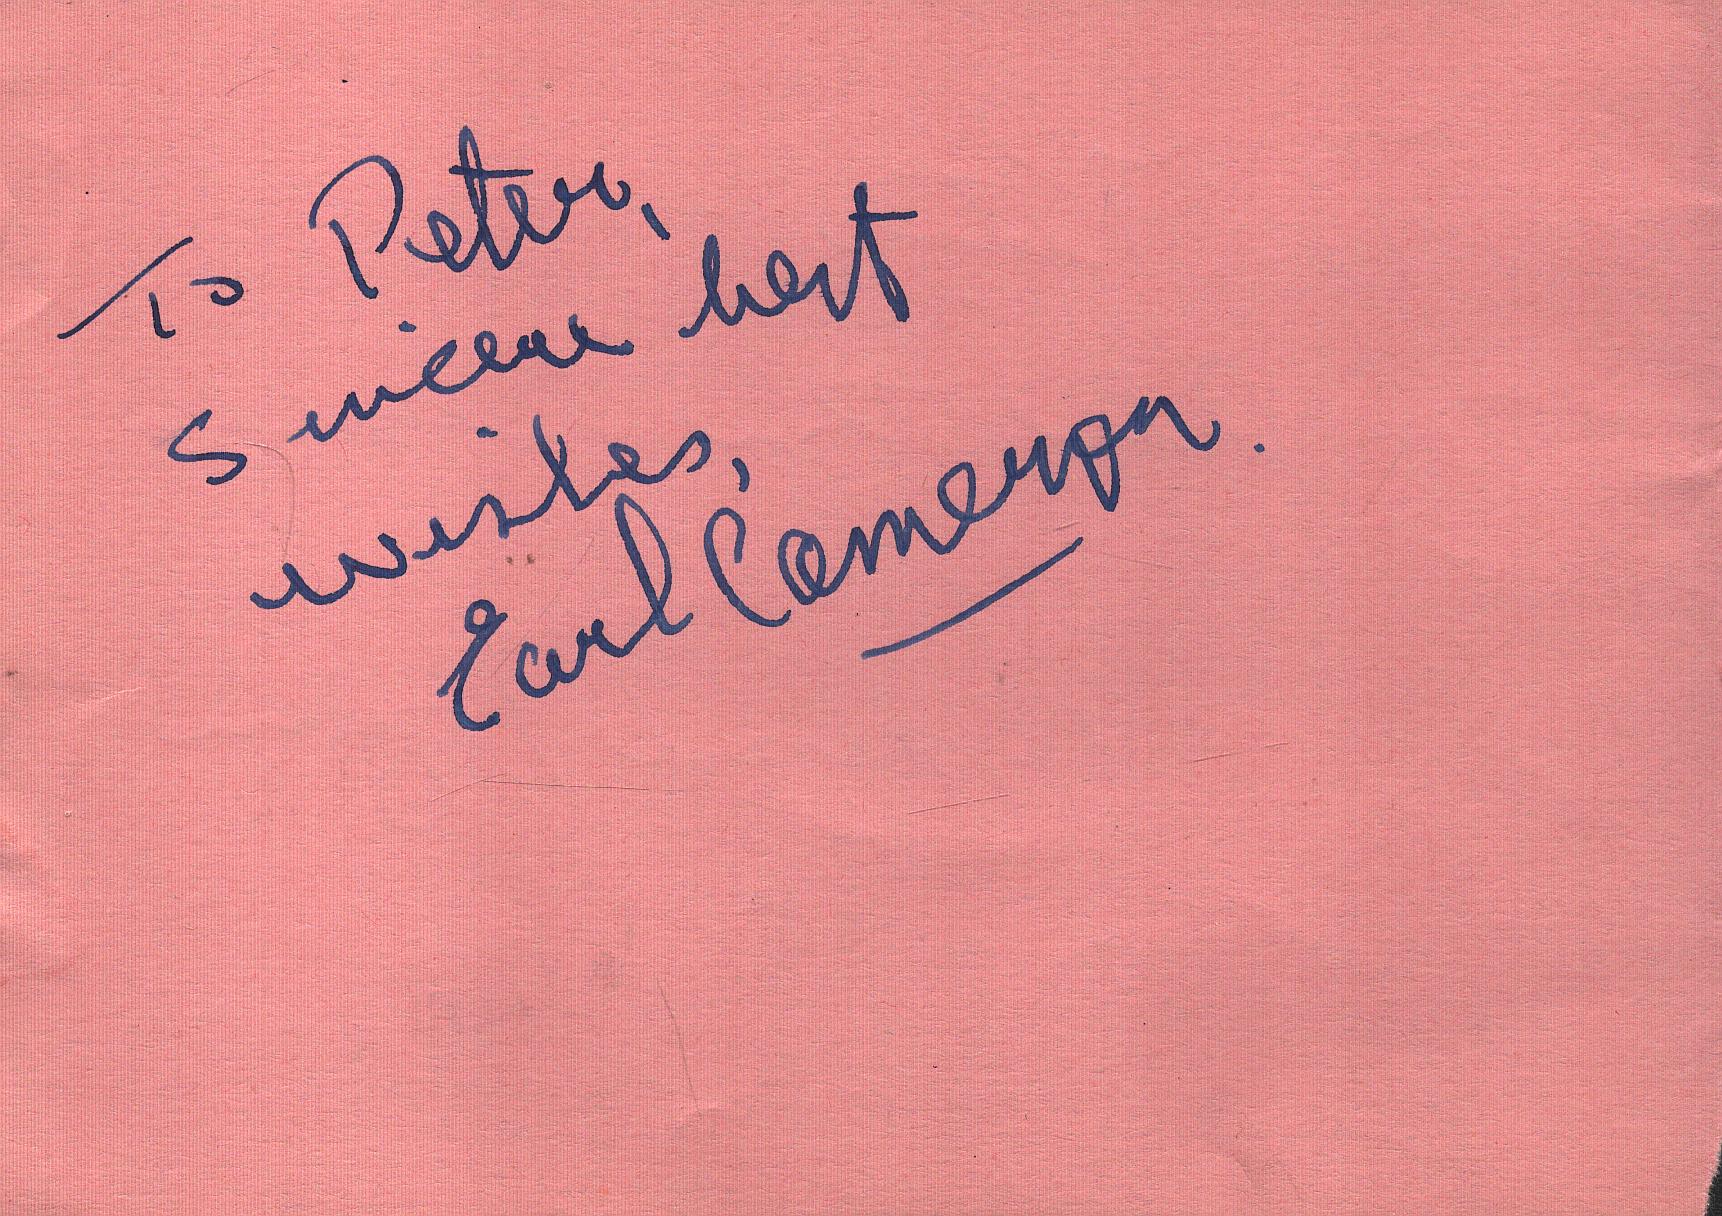 To Peter,
Sincere best
wishes,
Earl Cameron.